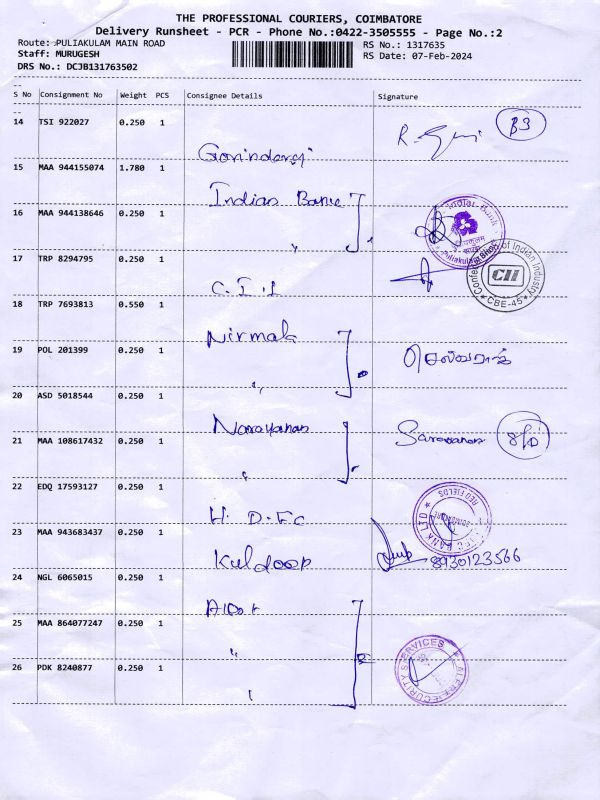 THE PROFESSIONAL COURIERS, COIMBATORE
Delivery Runsheet - PCR - Phone No.:0422-3505555 - Page No.:2
Route: PULIAKULAM MAIN ROAD
RS No.: 1317635
Staff: MURUGESH
RS Date: 07-Feb-2024
DRS No.: DCJB131763502
S No Consignment No Weight PCS Consignee Details Signature
14 TSI 922027 0.250 1
B3
15 MAA 944155074 1.780 1
Indian Bank
16 MAA 944138646 0.250 1
"
17 TRP 8294795 0.250 1
C.I.I
CII
CBE-45
18 TRP 7693813 0.550 1
Nirmala
19 POL 201399 0.250 1
"
செல்வராஜ்
20 ASD 5018544 0.250 1
Narayanan
21 MAA 108617432 0.250 1
"
Saravanan
22 EDQ 17593127 0.250 1
H.D.F.C
RED FIELDS
23 MAA 943683437 0.250 1
Kuldeep
8930123566
24 NGL 6065015 0.250 1
25 MAA 864077247 0.250 1
"
26 PDK 8240877 0.250 1
SECURITY SERVICES